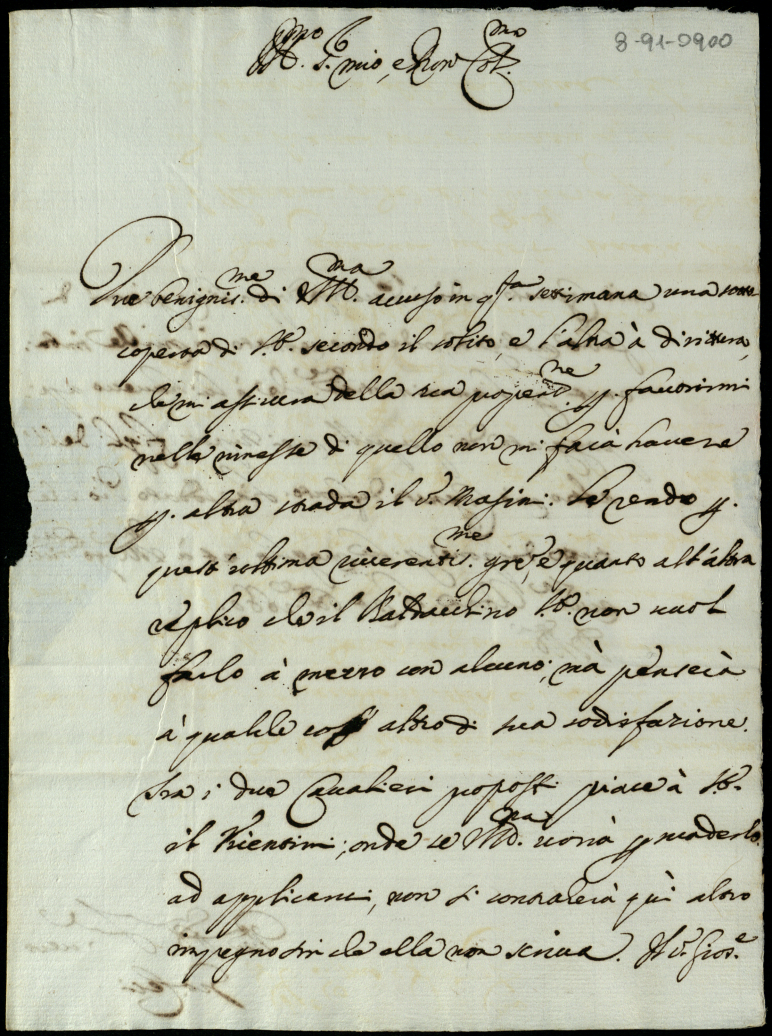 8-91-0900
Ill.mo S.r mio, e Pron Col.mo
Due benignis.me di V.S. Ill.ma accuso in q.sta settimana una sotto
coperta di S.A. secondo il solito, e l'altra à dirittura,
che mi assicura della sua propens.ne p. favorirmi
nelle rimesse di quello non mi facia havere
p. altra strada il S. Masini. Le rendo p.
quest'ultima riverentis.me gre, e quanto all'altra
replico che il Battacchino S.A. non vuol
farlo à mezzo con alcuno, mà penserà
à qualche cosa altro di sua sodisfazione.
Tra i due Cavalieri proposti piace à S.A.
il Trentini, onde se V.S. Ill.ma vorrà p.suaderlo
ad applicarci, non si contraerà quì altro
impegno sin che ella non scriva. Il S. Gios.e